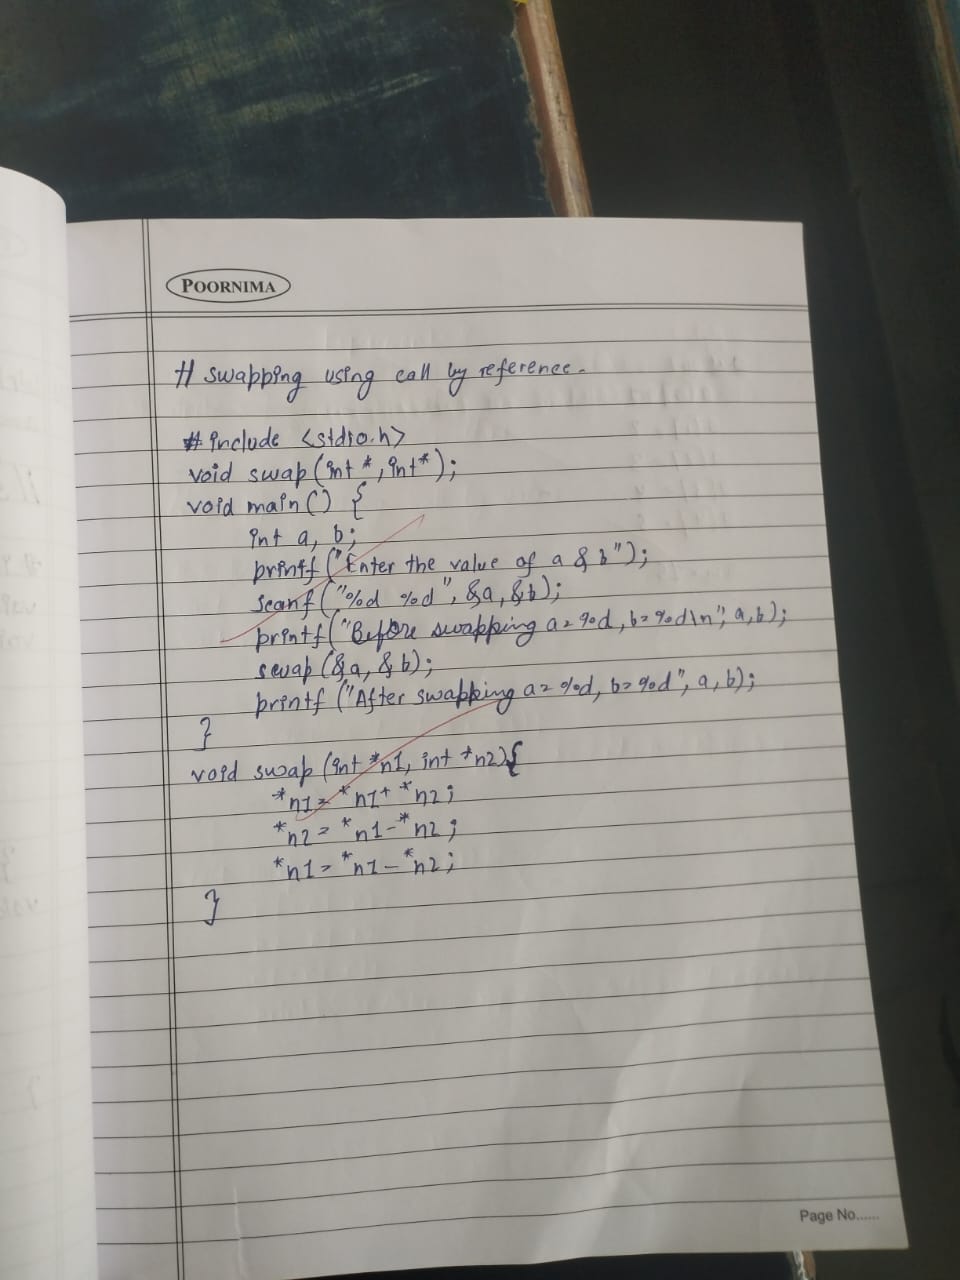 POORNIMA
# swapping using call by reference.
# include <stdio.h>
void swap(int *, int*);
void main() {
int a, b;
printf ("Enter the value of a & b");
scanf ("%d %d", &a, &b);
printf ("Before swapping a=%d, b=%d\n", a, b);
swap (&a, &b);
printf ("After swapping a=%d, b=%d", a, b);
}
void swap (int *n1, int *n2){
*n1 = *n1 + *n2;
*n2 = *n1 - *n2;
*n1 = *n1 - *n2;
}
Page No......